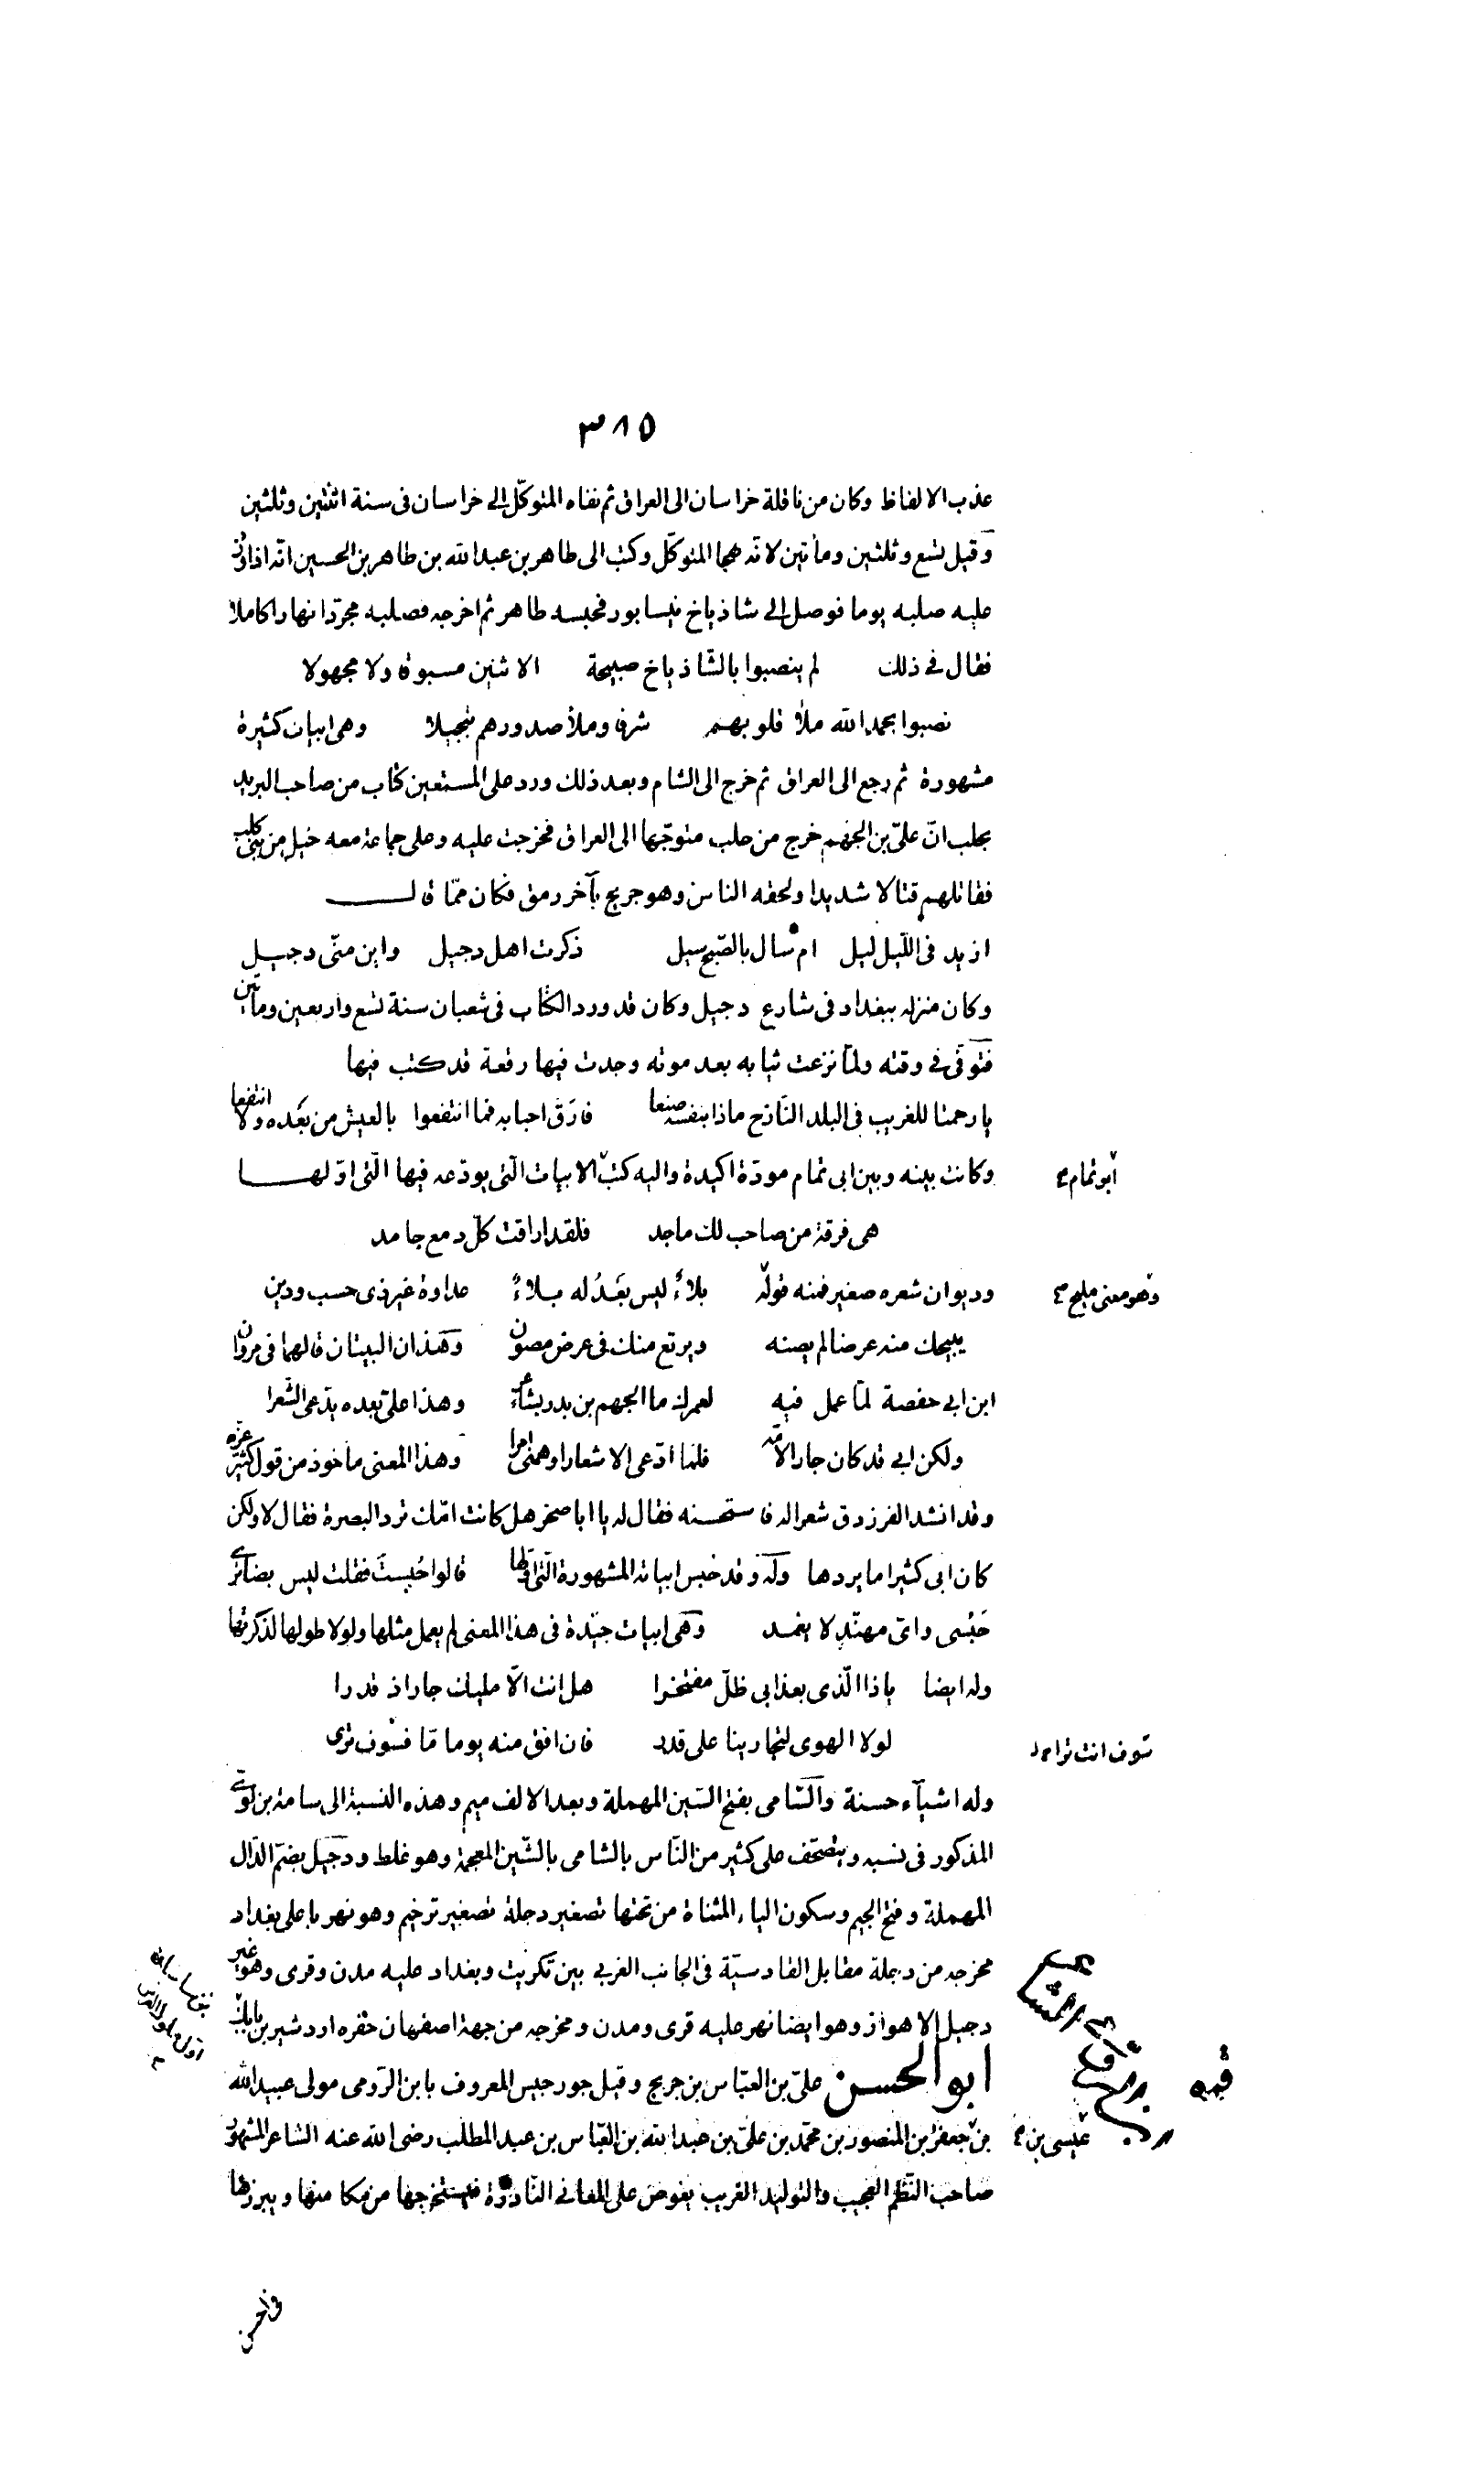 ٣٨٥
عذب الالفاظ وكان من ناقلة خراسان الى العراق ثم نفاه المتوكّل الى خراسان فى سنة اثنتين وثلثين
وقيل تسع وثلثين ومأتين لانّه هجا المتوكّل وكتب الى طاهر بن عبد الله بن طاهر بن الحسين انّه اذا
عليه صلبه يوما فوصل الى شاذياخ نيسابور فحبسه طاهر ثم اخرجه فصلبه مجرّدا نهارا كاملا
فقال فى ذلك لم ينصبوا بالشّاذياخ صبيحة الاثنين مسبوقا ولا مجهولا
نصبوا بحمد الله ملأ قلوبهم شرفا وملأ صدورهم تبجيلا وهى ابيات كثيرة
مشهورة ثم رجع الى العراق ثم خرج الى الشام وبعد ذلك ورد على المستعين كتاب من صاحب البريد
بحلب انّ علىّ بن الجهم خرج من حلب متوجّها الى العراق فخرجت عليه وعلى جماعة معه خيل من بنى كلب
فقاتلهم قتالا شديدا ولحقه الناس وهو جريح بآخر رمق فكان ممّا قال
ازيد فى اللّيل ليل ام سال بالصّبح سيل ذكرت اهل دجيل واين منّى دجيل
وكان منزله ببغداد فى شارع دجيل وكان قد ورد الكتاب فى شعبان سنة تسع واربعين ومأتين
فتوفّى فى وقته ولمّا نزعت ثيابه بعد موته وجدت فيها رقعة قد كتب فيها
يا رحمتا للغريب فى البلد النّازح ماذا بنفسه صنعا فارَق احبابه فما انتفعوا بالعيش من بَعده ولا انتفعا
وكانت بينه وبين ابى تمام مودّة اكيدة واليه كتب الابيات الّتى يودّعه فيها الّتى اوّلها
ابو تمام
هى فرقة من صاحب لك ماجد فلقد اراقت كلّ دمع جامد
وديوان شعره صغير فمنه قوله بلاءٌ ليس بَعدُ له بلاءٌ عداوة غير ذى حسب ودين
وهو معنى مليح
يبيحك منه عرضا لم يصنه ويرتع منك فى عرض مصون وهذان البيتان قالهما فى مروان
ابن ابى حفصة لمّا عمل فيه لعمرك ما الجهم بن بدر بشاعر وهذا علىّ بعده يدّعى الشّعرا
ولكن ابى قد كان جارا لامّه فلمّا ادّعى الاشعار اوهمنى امرا وهذا المعنى مأخوذ من قول كثيّر عزّة
وقد انشد الفرزدق شعرا له فاستحسنه فقال له يا ابا صخر هل كانت امّك ترد البصرة فقال لا ولكن
كان ابى كثيرا ما يردها وله وقد حبس ابياته المشهورة الّتى اوّلها قالوا حُبِستَ فقلت ليس بضائرى
حَبْسى واىّ مهنّد لا يغمد وهى ابيات جيّدة فى هذا المعنى لم يعمل مثلها ولولا طولها لذكرتها
وله ايضا يا ذا الّذى بعذابى ظلّ مفتخرا هل انت الّا مليك جار اذ قدرا
لولا الهوى لتجارينا على قدر فان افق منه يوما مّا فسوف ترى
سوف انت تراه
وله اشياء حسنة والسّامى بفتح السّين المهملة وبعد الالف ميم وهذه النسبة الى سامة بن لؤىّ
المذكور فى نسبه ويتصحّف على كثير من النّاس بالشامى بالشّين المعجمة وهو غلط ودجيل بضمّ الدّال
المهملة وفتح الجيم وسكون الياء المثناة من تحتها تصغير دجلة تصغير ترخيم وهو نهر باعلى بغداد
مخرجه من دجلة مقابل القادسيّة فى الجانب الغربى بين تكريت وبغداد عليه مدن وقرى وهو غير
دجيل الاهواز وهو ايضا نهر عليه قرى ومدن ومخرجه من جهة اصفهان حفره اردشير بن بابك
ابو الحسن علىّ بن العبّاس بن جريج وقيل جورجيس المعروف بابن الرّومى مولى عبيد الله
بن جعفر بن المنصور بن محمّد بن علىّ بن عبد الله بن العبّاس بن عبد المطلب رضى الله عنه الشاعر المشهور
عيسى بن
صاحب النّظم العجيب والتوليد الغريب يغوص على المعانى النّادرة فيستخرجها من مكامنها ويبرزها
فى احسن